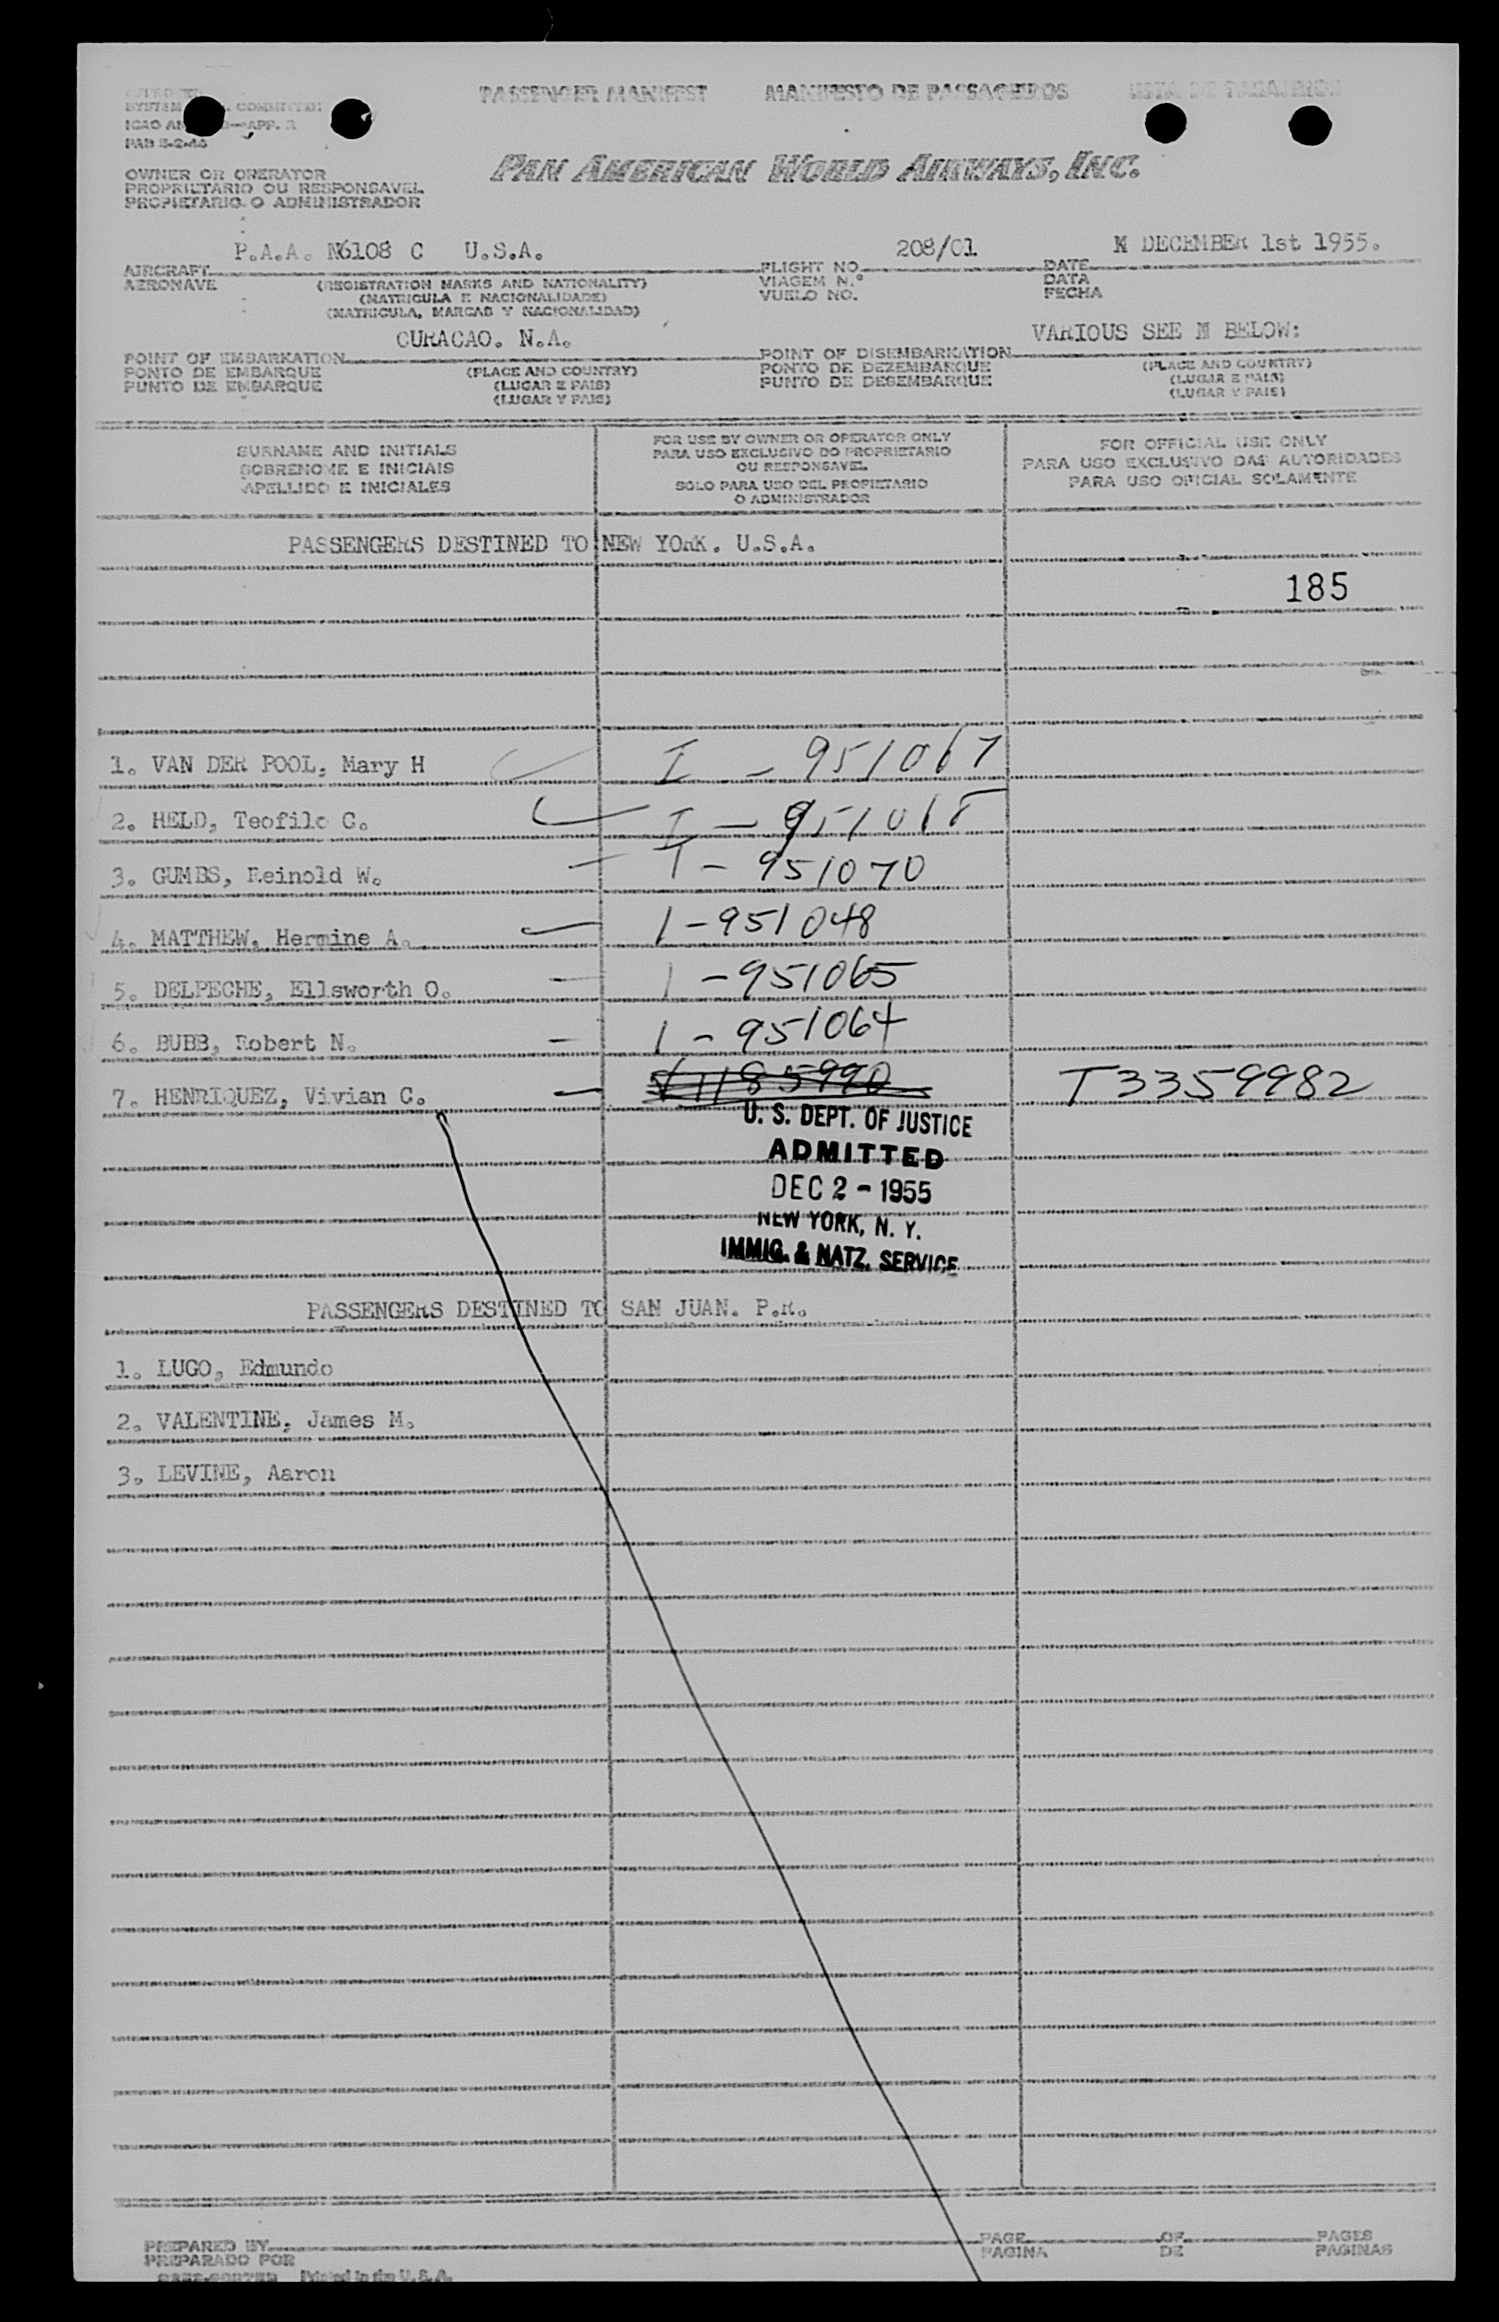 PASSENGER MANIFEST MANIFESTO DE PASSAGEIROS LISTA DE PASAJEROS
SYSTEM COMMITTEE
ICAO AN — APP.
PAN AMERICAN WORLD AIRWAYS, INC.
OWNER OR OPERATOR
PROPRIETARIO OU RESPONSAVEL
PROPIETARIO O ADMINISTRADOR
P.A.A. N6108 C U.S.A. 208/01 DECEMBER 1st 1955.
AIRCRAFT FLIGHT NO. DATE
AERONAVE (REGISTRATION MARKS AND NATIONALITY) VIAGEM N.º DATA
(MATRICULA E NACIONALIDADE) VUELO NO. FECHA
(MATRICULA, MARCAS Y NACIONALIDAD)
CURACAO. N.A. VARIOUS SEE BELOW:
POINT OF EMBARKATION POINT OF DISEMBARKATION
PONTO DE EMBARQUE (PLACE AND COUNTRY) PONTO DE DEZEMBARQUE (PLACE AND COUNTRY)
PUNTO DE EMBARQUE (LUGAR E PAIS) PUNTO DE DESEMBARQUE (LUGAR E PAIS)
(LUGAR Y PAIS) (LUGAR Y PAIS)
SURNAME AND INITIALS
SOBRENOME E INICIAIS
APELLIDO E INICIALES
FOR USE BY OWNER OR OPERATOR ONLY
PARA USO EXCLUSIVO DO PROPRIETARIO
OU RESPONSAVEL
SOLO PARA USO DEL PROPIETARIO
O ADMINISTRADOR
FOR OFFICIAL USE ONLY
PARA USO EXCLUSIVO DAS AUTORIDADES
PARA USO OFICIAL SOLAMENTE
PASSENGERS DESTINED TO NEW YORK. U.S.A.
185
1. VAN DER POOL, Mary H I - 951067
2. HELD, Teofilo C. I - 951068
3. GUMBS, Reinold W. I - 951070
4. MATTHEW, Hermine A. I - 951048
5. DELPECHE, Ellsworth O. I - 951065
6. BUBB, Robert N. I - 951064
7. HENRIQUEZ, Vivian C. T3359982
U. S. DEPT. OF JUSTICE
ADMITTED
DEC 2 - 1955
NEW YORK, N. Y.
IMMIG. & NATZ. SERVICE
PASSENGERS DESTINED TO SAN JUAN. P.R.
1. LUGO, Edmundo
2. VALENTINE, James M.
3. LEVINE, Aaron
PREPARED BY PAGE OF PAGES
PREPARADO POR PAGINA DE PAGINAS
Printed in the U.S.A.